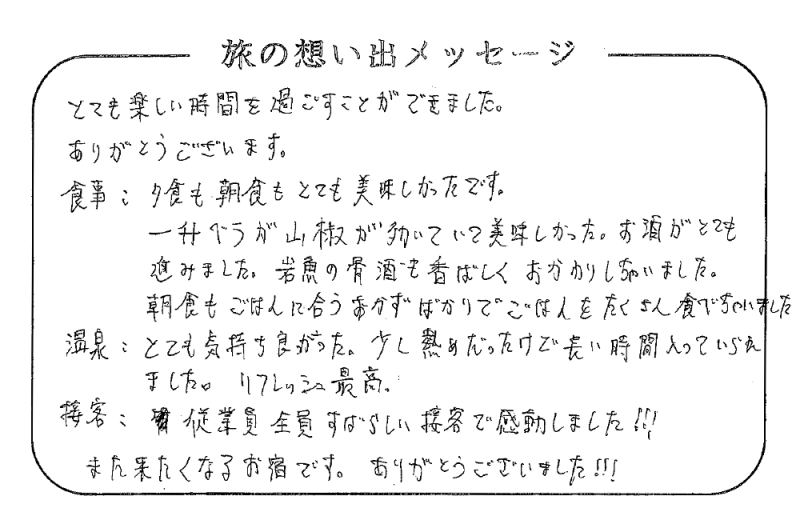 旅の想い出メッセージ
とても楽しい時間を過ごすことができました。
ありがとうございます。
食事：夕食も朝食もとても美味しかったです。
一升ベラが山椒が効いていて美味しかった。お酒がとても
進みました。岩魚の骨酒も香ばしくおかわりしちゃいました。
朝食もごはんに合うおかずばかりでごはんをたくさん食べちゃいました
温泉：とても気持ち良かった。少し熱めだったけど長い時間入っていられ
ました。リフレッシュ最高。
接客：従業員全員すばらしい接客で感動しました!!!
また来たくなるお宿です。ありがとうございました!!!